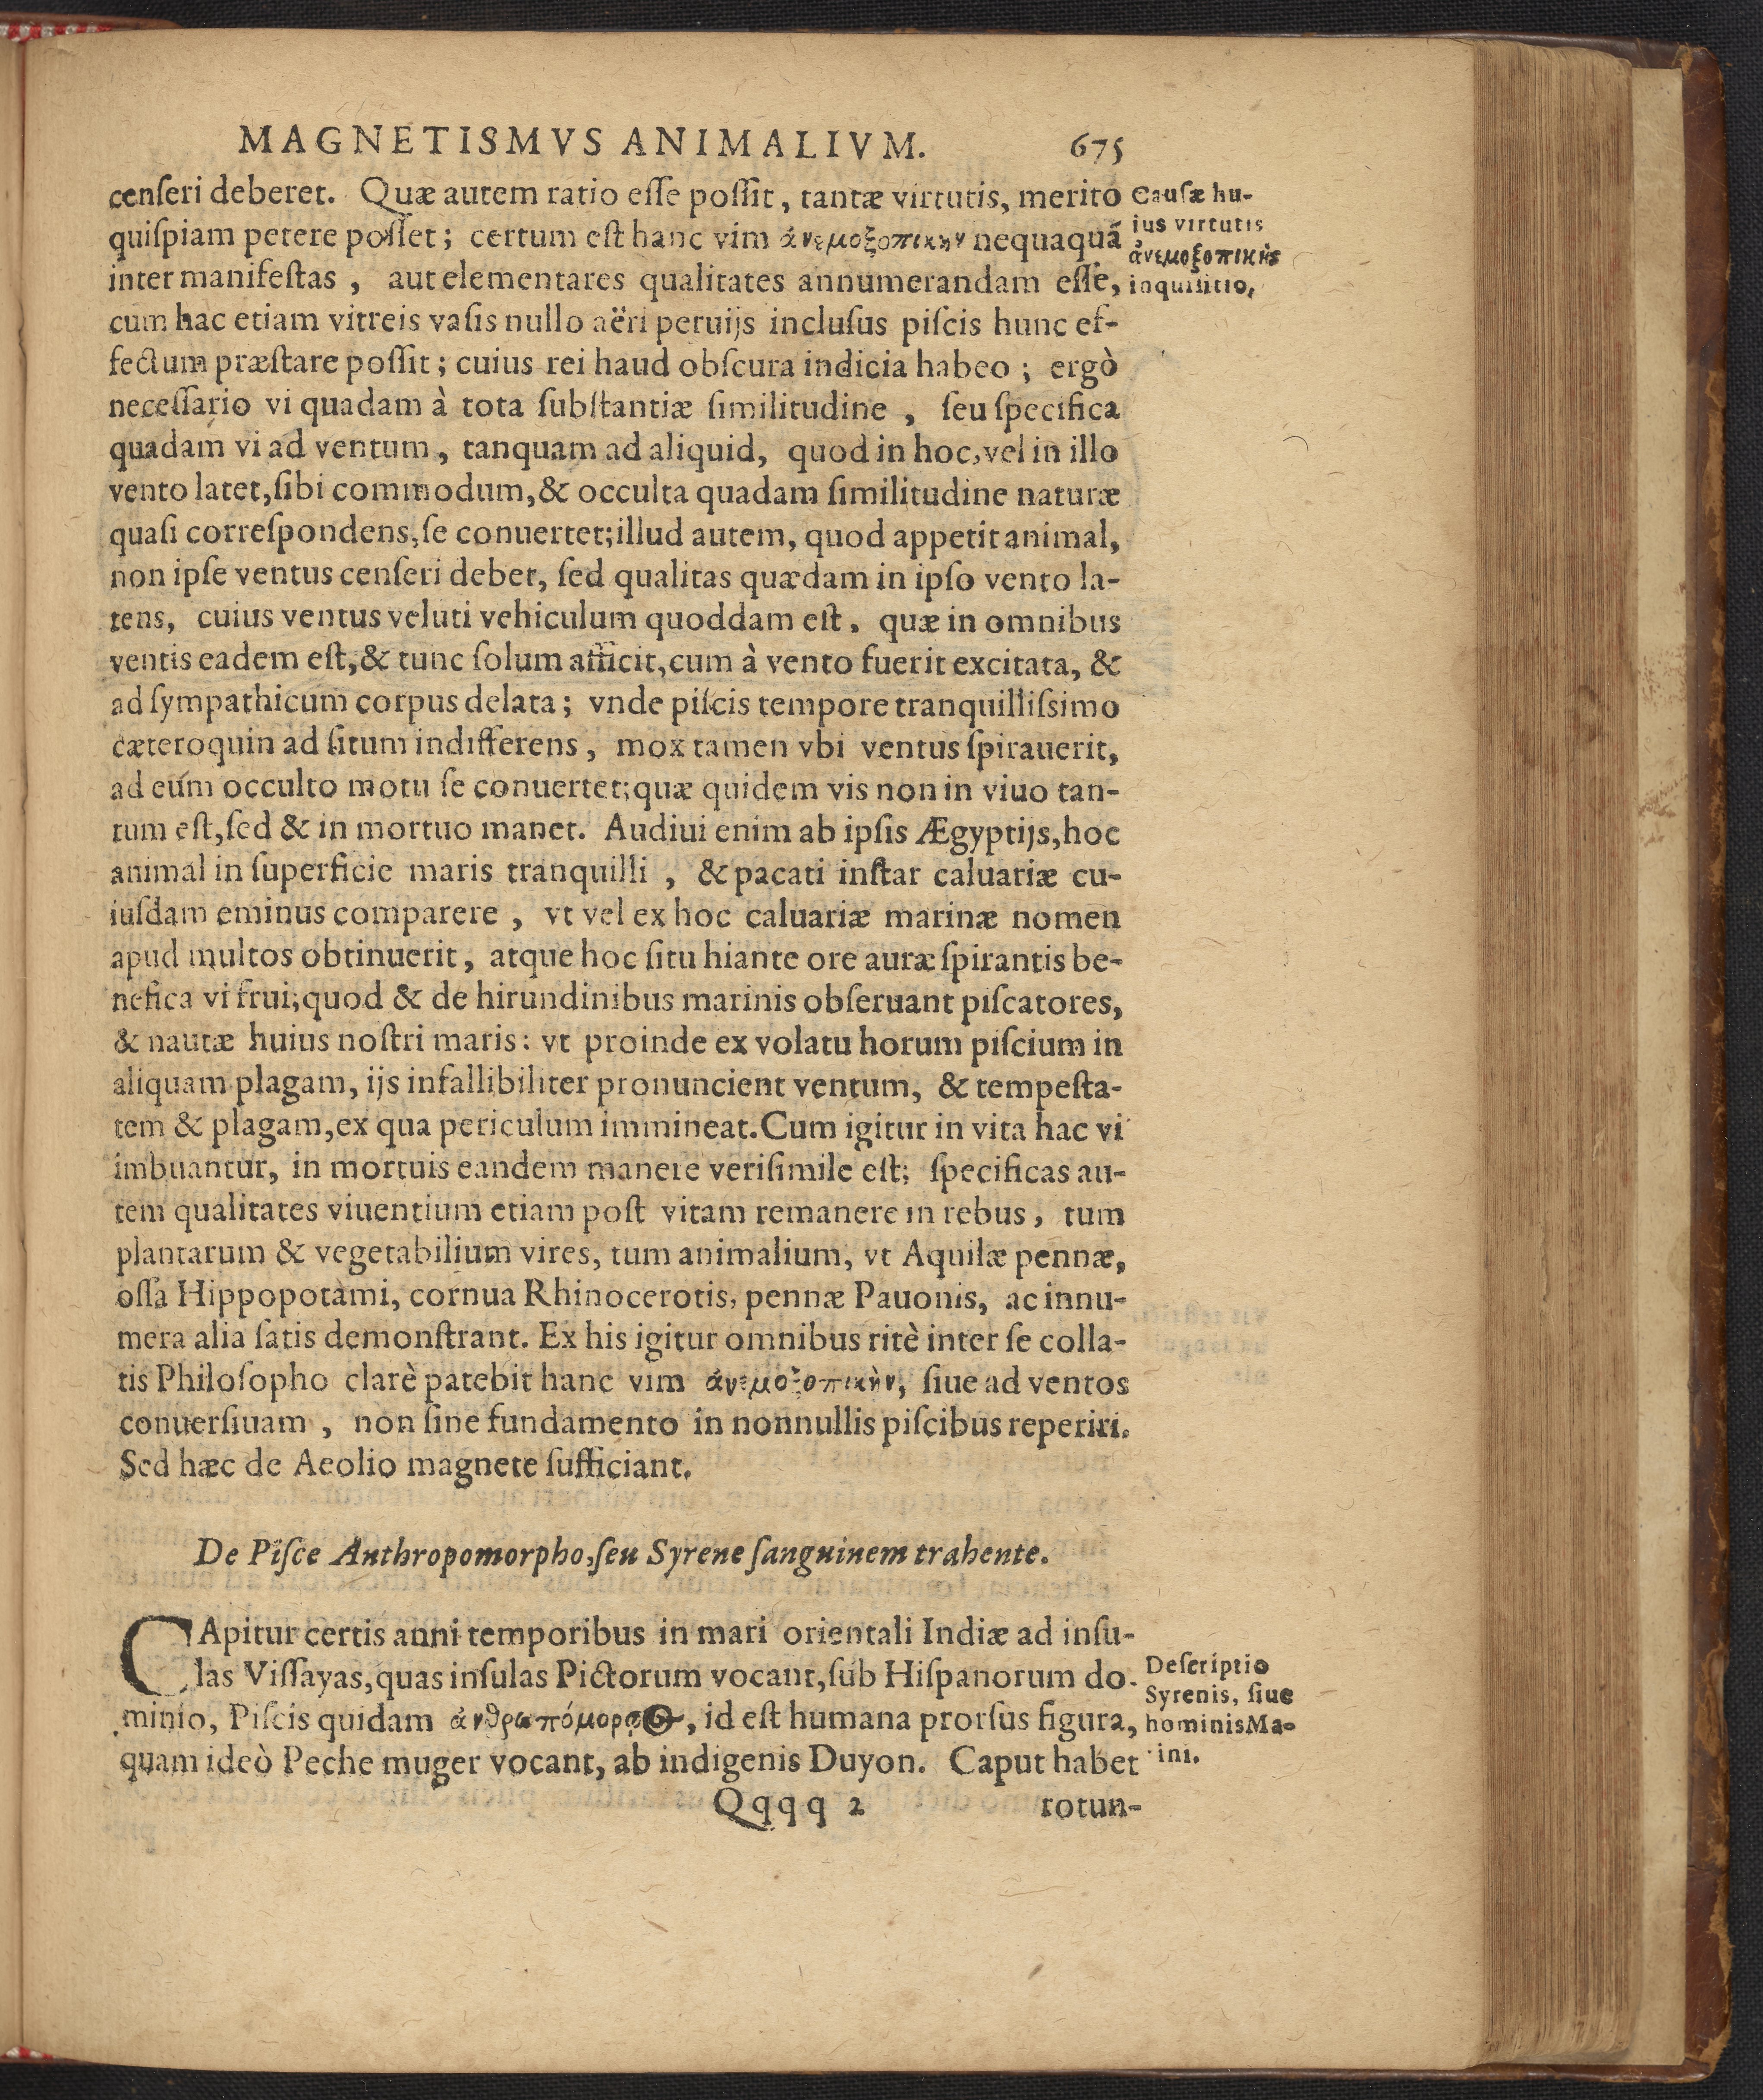 MAGNETISMVS ANIMALIVM. 675
cenſeri deberet. Quæ autem ratio eſſe poſſit, tantæ virtutis, merito
quiſpiam petere poſſet; certum eſt hanc vim ἀνεμοξοπικην nequaquã
inter manifeſtas, aut elementares qualitates annumerandam eſſe,
cum hac etiam vitreis vaſis nullo aëri peruijs incluſus piſcis hunc ef-
fectum præſtare poſſit; cuius rei haud obſcura indicia habeo; ergò
neceſſario vi quadam à tota ſubſtantiæ ſimilitudine, ſeu ſpecifica
quadam vi ad ventum, tanquam ad aliquid, quod in hoc, vel in illo
vento latet, ſibi commodum, & occulta quadam ſimilitudine naturæ
quaſi correſpondens, ſe conuertet; illud autem, quod appetit animal,
non ipſe ventus cenſeri debet, ſed qualitas quædam in ipſo vento la-
tens, cuius ventus veluti vehiculum quoddam eſt, quæ in omnibus
ventis eadem eſt, & tunc ſolum afficit, cum à vento fuerit excitata, &
ad ſympathicum corpus delata; vnde piſcis tempore tranquilliſsimo
cæteroquin ad ſitum indifferens, mox tamen vbi ventus ſpirauerit,
ad eum occulto motu ſe conuertet; quæ quidem vis non in viuo tan-
tum eſt, ſed & in mortuo manet. Audiui enim ab ipſis Ægyptijs, hoc
animal in ſuperficie maris tranquilli, & pacati inſtar caluariæ cu-
iuſdam eminus comparere, vt vel ex hoc caluariæ marinæ nomen
apud multos obtinuerit, atque hoc ſitu hiante ore auræ ſpirantis be-
nefica vi frui; quod & de hirundinibus marinis obſeruant piſcatores,
& nautæ huius noſtri maris: vt proinde ex volatu horum piſcium in
aliquam plagam, ijs infallibiliter pronuncient ventum, & tempeſta-
tem & plagam, ex qua periculum immineat. Cum igitur in vita hac vi
imbuantur, in mortuis eandem manere veriſimile eſt; ſpecificas au-
tem qualitates viuentium etiam poſt vitam remanere in rebus, tum
plantarum & vegetabilium vires, tum animalium, vt Aquilæ pennæ,
oſſa Hippopotàmi, cornua Rhinocerotis, pennæ Pauonis, ac innu-
mera alia ſatis demonſtrant. Ex his igitur omnibus ritè inter ſe colla-
tis Philoſopho clarè patebit hanc vim ἀνεμοξοπικὴν, ſiue ad ventos
conuerſiuam, non ſine fundamento in nonnullis piſcibus reperiri.
Sed hæc de Aeolio magnete ſufficiant.
Cauſæ hu-
ius virtutis
ἀνεμοξοπικῆς
inquiſitio,
De Piſce Anthropomorpho, ſeu Syrene ſanguinem trahente.
CApitur certis anni temporibus in mari orientali Indiæ ad inſu-
las Viſſayas, quas inſulas Pictorum vocant, ſub Hiſpanorum do-
minio, Piſcis quidam ἀνθρωπόμορφος, id eſt humana prorſus figura,
quam ideò Peche muger vocant, ab indigenis Duyon. Caput habet
Deſcriptio
Syrenis, ſiue
hominis Ma-
ini.
Qqqq 2 rotun-